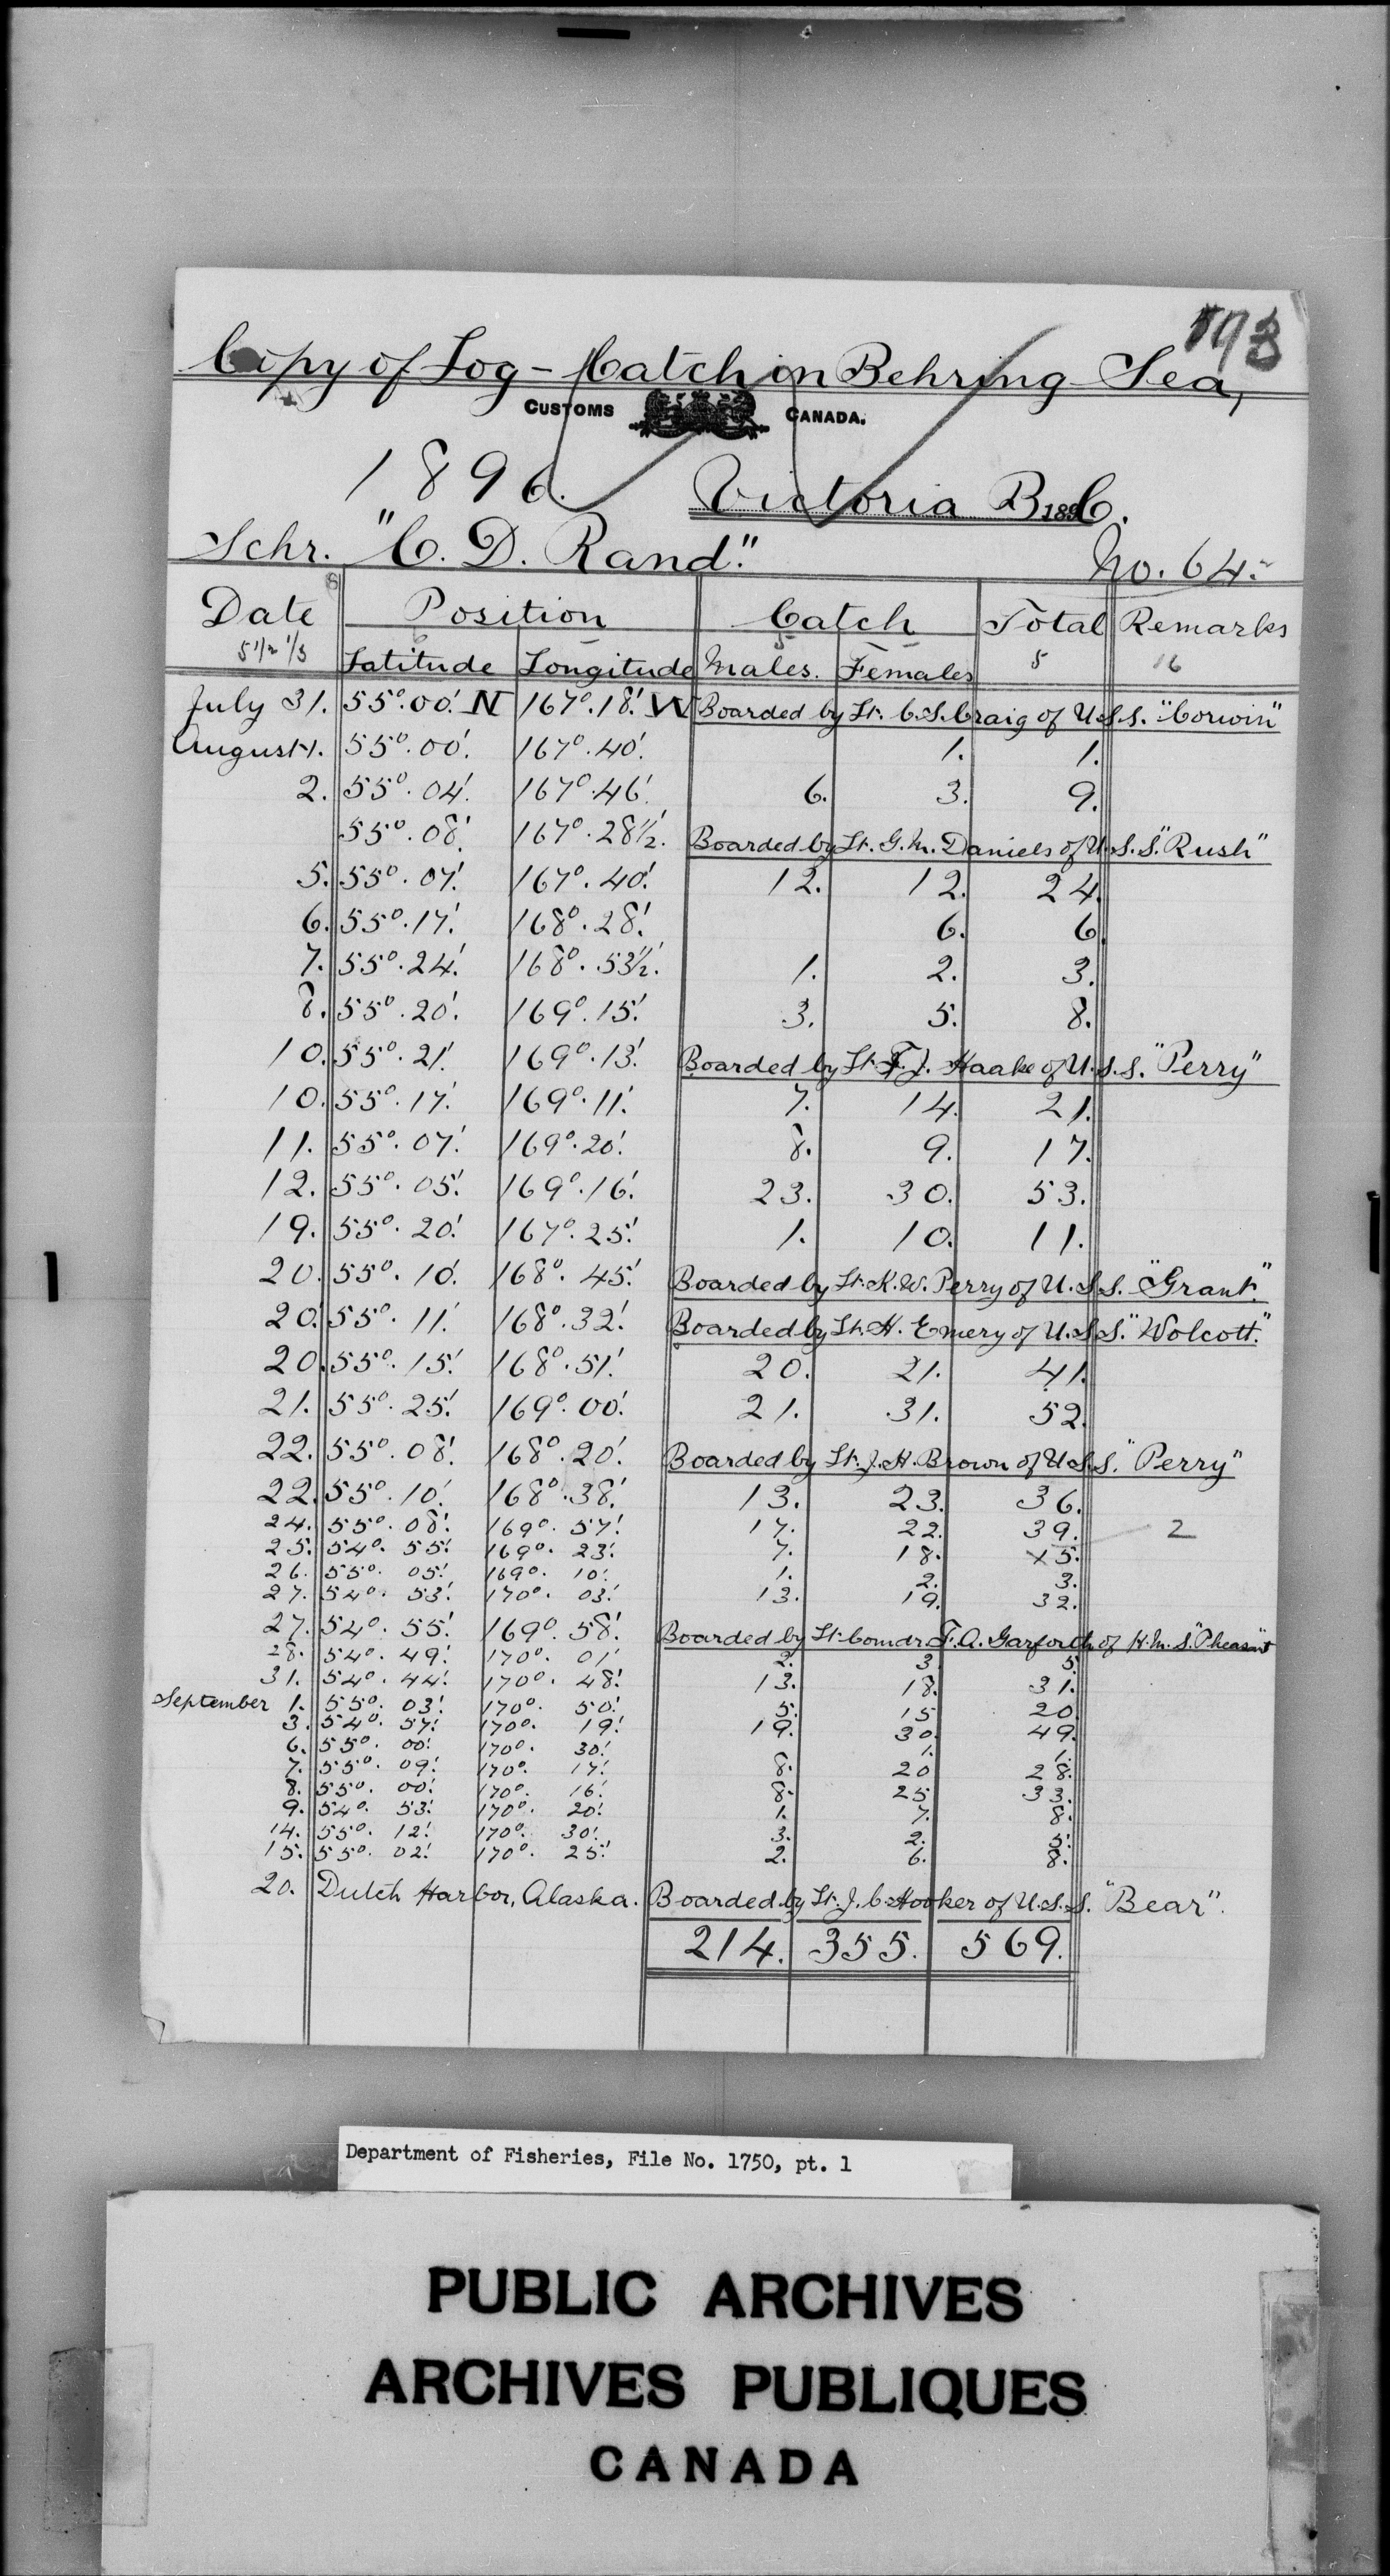 193
Copy of Log - Catch in Behring Sea,
CUSTOMS CANADA.
1896. Victoria B.C. 189
Schr. "C. D. Rand." No. 64.
Date Position Catch Total Remarks
5 1/2 1/3 Latitude Longitude Males. Females 5 16
July 31. 55°.00'. N 167°.18'. W Boarded by Lt. C.S. Craig of U.S.S. "Corwin"
August 1. 55°.00'. 167°.40'. 1. 1.
2. 55°.04'. 167°.46'. 6. 3. 9.
55°.08'. 167°.28½'. Boarded by Lt. G.M. Daniels of U.S.S. "Rush"
5. 55°.07'. 167°.40'. 12. 12. 24.
6. 55°.17'. 168°.28'. 6. 6.
7. 55°.24'. 168°.53½'. 1. 2. 3.
8. 55°.20'. 169°.15'. 3. 5. 8.
10. 55°.21'. 169°.13'. Boarded by Lt. F.J. Haake of U.S.S. "Perry"
10. 55°.17'. 169°.11'. 7. 14. 21.
11. 55°.07'. 169°.20'. 8. 9. 17.
12. 55°.05'. 169°.16'. 23. 30. 53.
19. 55°.20'. 167°.25'. 1. 10. 11.
20. 55°.10'. 168°.45'. Boarded by Lt. K.W. Perry of U.S.S. "Grant."
20. 55°.11'. 168°.32'. Boarded by Lt. H. Emery of U.S.S. "Wolcott."
20. 55°.15'. 168°.51'. 20. 21. 41.
21. 55°.25'. 169°.00'. 21. 31. 52.
22. 55°.08'. 168°.20'. Boarded by Lt. J.H. Brown of U.S.S. "Perry"
22. 55°.10'. 168°.38'. 13. 23. 36.
24. 55°.08'. 169°.57'. 17. 22. 39. 2
25. 54°.55'. 169°.23'. 7. 18. x5.
26. 55°.05'. 169°.10'. 1. 2. 3.
27. 54°.53'. 170°.03'. 13. 19. 32.
27. 54°.55'. 169°.58'. Boarded by Lt. Comdr. F.A. Garforth of H.M.S. "Pheasant"
28. 54°.49'. 170°.01' 2. 3. 5.
31. 54°.44'. 170°.48'. 13. 18. 31.
September 1. 55°.03'. 170°.50'. 5. 15 20.
3. 54°.57'. 170°.19'. 19. 30. 49.
6. 55°.00'. 170°.30'. 1. 1.
7. 55°.09'. 170°.17'. 8. 20 28.
8. 55°.00'. 170°.16'. 8. 25 33.
9. 54°.53'. 170°.20'. 1. 7. 8.
14. 55°.12'. 170°.30'. 3. 2. 5.
15. 55°.02'. 170°.25'. 2. 6. 8.
20. Dutch Harbor, Alaska. Boarded by Lt. J.C. Hooker of U.S.S. "Bear".
214. 355. 569.
Department of Fisheries, File No. 1750, pt. 1
PUBLIC ARCHIVES
ARCHIVES PUBLIQUES
CANADA